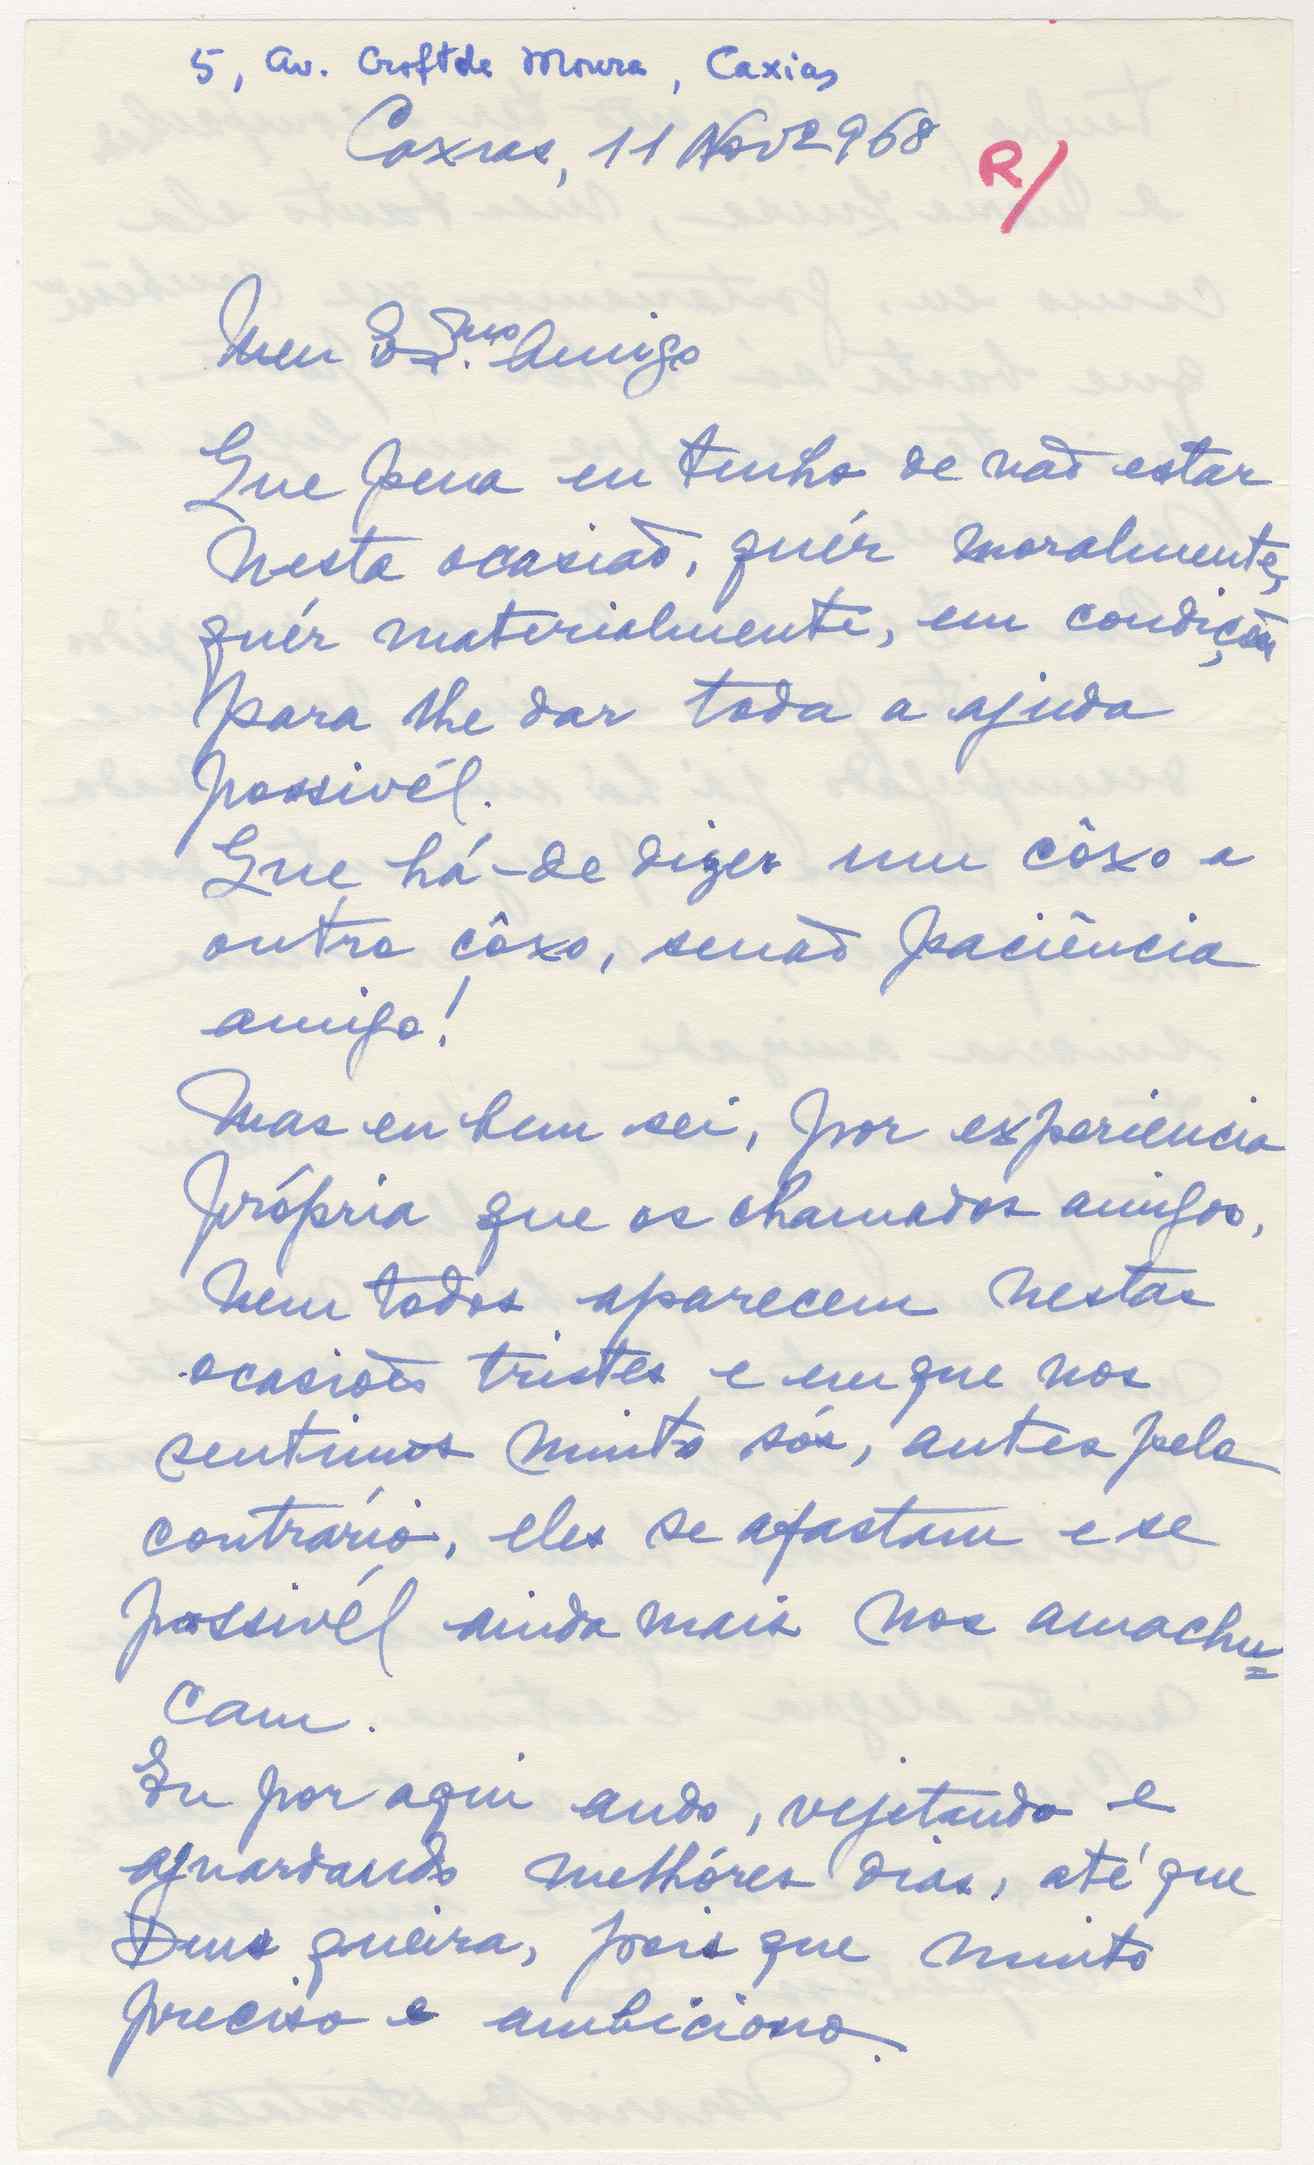 5, Av. Croft de Moura, Caxias
Caxias, 11 Nov 968
R/
Meu Exmo. Amigo
Que pena eu tenho de não estar
nesta ocasião, quér moralmente,
quér materialmente, em condições
para lhe dar toda a ajuda
possivél.
Que há-de dizer um côxo a
outro côxo, senão paciência
amigo!
Mas eu bem sei, por experiencia
própria que os chamados amigos,
nem todos aparecem nestas
ocasiões tristes e em que nos
sentimos muito sós, antes pelo
contrário, eles se afastam e se
possivél ainda mais nos amachu=
cam.
Eu por aqui ando, vejetando e
aguardando melhóres dias, até que
Deus queira, pois que muito
preciso e ambiciono.